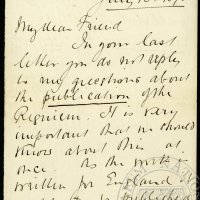 My dear Friend
In your last
letter you do not reply
to my questions about
the publication of the
Regimen. It is very
important that we should
know about this at
once. As the work is
written for England